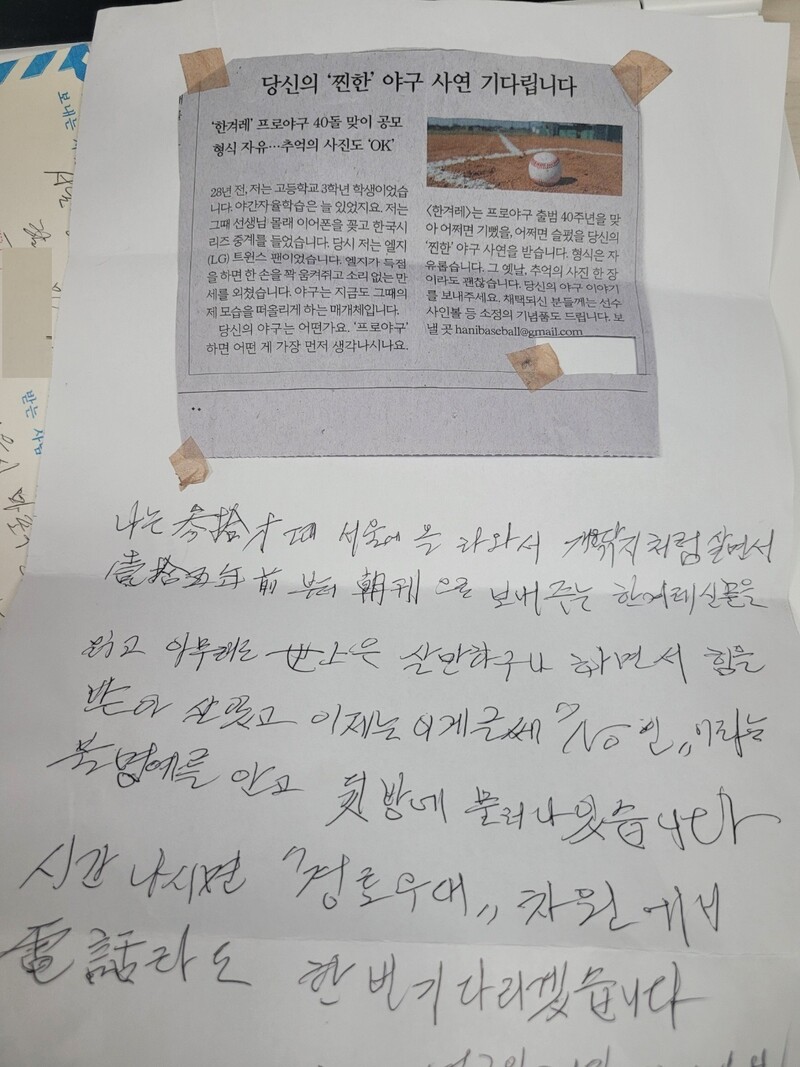 당신의 '찐한' 야구 사연 기다립니다
'한겨레' 프로야구 40돌 맞이 공모
형식 자유…추억의 사진도 'OK'
28년 전, 저는 고등학교 3학년 학생이었습
니다. 야간자율학습은 늘 있었지요. 저는
그때 선생님 몰래 이어폰을 꽂고 한국시
리즈 중계를 들었습니다. 당시 저는 엘지
(LG) 트윈스 팬이었습니다. 엘지가 득점
을 하면 한 손을 꽉 움켜쥐고 소리 없는 만
세를 외쳤습니다. 야구는 지금도 그때의
제 모습을 떠올리게 하는 매개체입니다.
당신의 야구는 어떤가요. '프로야구'
하면 어떤 게 가장 먼저 생각나시나요.
<한겨레>는 프로야구 출범 40주년을 맞
아 어쩌면 기뻤을, 어쩌면 슬펐을 당신의
'찐한' 야구 사연을 받습니다. 형식은 자
유롭습니다. 그 옛날, 추억의 사진 한 장
이라도 괜찮습니다. 당신의 야구 이야기
를 보내주세요. 채택되신 분들께는 선수
사인볼 등 소정의 기념품도 드립니다. 보
낼 곳 hanibaseball@gmail.com
보내는
받는 사람
나는 参拾才 때 서울에 올라와서 개딱지처럼 살면서
壹拾五年前 부터 朝刊으로 보내주는 한겨레신문을
읽고 아무래도 世上은 살만하구나 하면서 힘을
받아 살았고 이제는 이게글쎄 "No인" 이라는
불명예를 안고 뒷방에 물러나있습니다
시간 나시면 "경로우대" 차원에서
電話라도 한번 기다리겠습니다